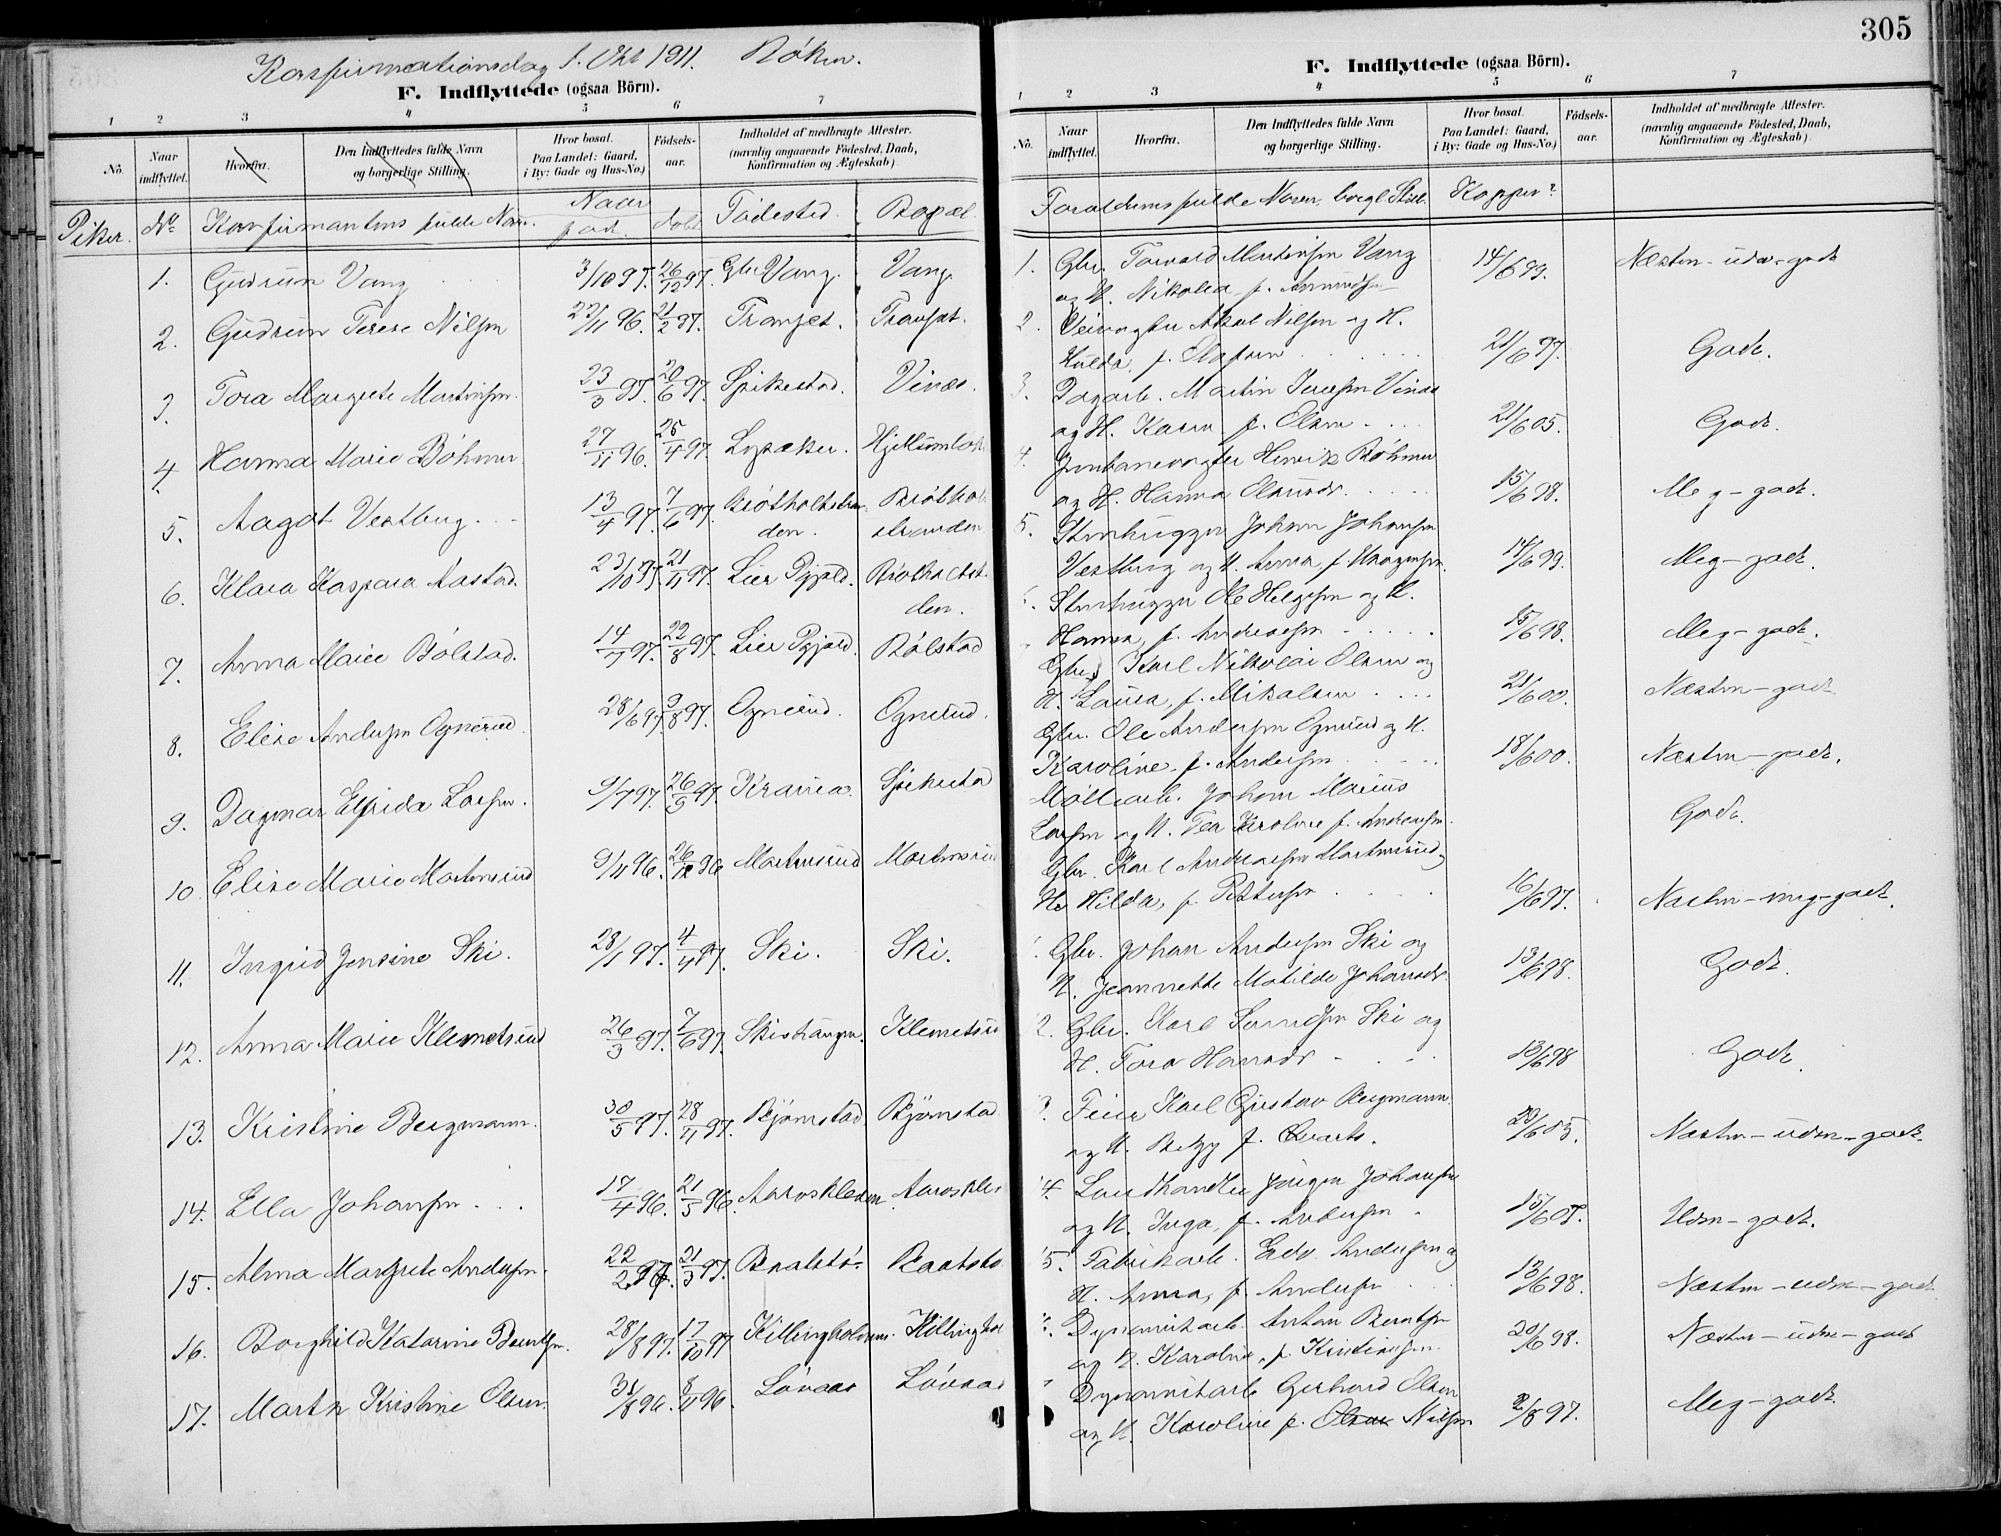 Konfirmationsdag 1. Okt 1911. Röken.
F. Indflyttede (ogsaa Börn).
1 2 3 4 5 6 7
No. Naar indflyttet. Hvorfra. Den Indflyttedes fulde Navn og borgerlige Stilling. Hvor bosat. Paa Landet: Gaard, i By: Gade og Hus-No.) Födsels-aar. Indholdet af medbragte Attester. (navnlig angaaende Födested, Daab, Konfirmation og Ægteskab)
Piker. No Konfirmantens fulde Navn. Naar född. döbt Födested. Bopæl.
1. Gudrun Vang 3/10 97. 26/12 97. Gbr Vang. Vang.
2. Gudrun Terese Nilsen 23/11 96. 21/2 97. Transet. Transet.
3. Tora Margrete Martinsen. 23/3 97. 20/6 97. Spikestad. Vinæs.
4. Hanna Marie Böhmer 27/11 96. 25/4 97. Lysaker.
5. Aagot Vestbug 13/4 97. 7/6 97.
den. stranden
6. Klara Kaspara Aastad. 21/11 97. Lier
den.
7. Anna Marie Bölstad. 14/7 97. 22/8 97. Lier Bölstad
8. Elise Andersen Ognerud 28/6 97. 9/8 97. Ognerud. Ognerud.
9. Dagmar Elfrida Larsen. 9/7 97. 26/9 97. Kranea. Spikestad
10. Elise Marie Martinsrud 9/11 96. 26/12 96 Martinsrud Martinsru
11. Ingrid Jensine Ski. 28/1 97. 4/4 97. Ski. Ski.
12. Anna Marie Klemetsrud 26/3 97. 7/6 97. Skistangen. Klemetsru
13. Kristine Bergmann. 30/5 97. 28/11 97. Björnstad Björnstad
14. Ella Johansen 17/4 96. 21/5 96.
15. Alma Margrete Andersen. 22/2 97. 21/3 97. Baatstö
16. Borghild Katarine Berntsen. 28/8 97. 17/10 97 Killingholmen. Killinghol
17. Marta Kristine Olsen. 31/8 96. 8/11 96. Lövaas Lövaas
305
F. Indflyttede (ogsaa Börn).
1 2 3 4 5 6 7
No. Naar indflyttet. Hvorfra. Den Indflyttedes fulde Navn og borgerlige Stilling. Hvor bosat. Paa Landet: Gaard, i By: Gade og Hus-No.) Födsels-aar. Indholdet af medbragte Attester. (navnlig angaaende Födested, Daab, Konfirmation og Ægteskab)
Forældrenes fulde Navn, borgl Stil. Kopper?
1. Gbr. Torvald Martinsen Vang 14/6 99. Næsten - udm - godt
og H. Nikolea, f. Amundsen
2. Veivogter Aksel Nilsen og H.
Hulda, f. Olafsen 21/6 97. Godt.
3. Dagarb. Martin Vinæs
og H. Karen f. Olsen 21/6 05. Godt.
4. Jernbanevogter Henrik Böhmer
og H. Hanna Olausdr. 15/6 98. Meg - godt.
5. Stenhugger Johan Johansen
Vestbug og H. Anna, f. Haagensen. 14/6 99. Meg - godt.
Stenhugger Ole Helgesen og H.
Hanna, f. Andreasen 15/6 98. Meg - godt.
Gbr. Karl Nikolai Olsen og
H. Laura, f. Mikalsen 21/6 00. Næsten - godt
Gbr. Ole Andersen Ognerud og H.
Karoline f. Andersen 18/6 00. Næsten - godt.
Möllearb. Johan Marius
Larsen og H. Tea Karoline f. Andreasen. Godt.
Gbr. Karl Andreasen Martinsrud og
H. Hilda, f. Pettersen 16/6 97. Næsten - meg - godt.
Gbr. Johan Andersen Ski og
H. Jeannette Matilde Johansdr. 13/6 98. Godt.
2. Gbr. Karl Ski og
H. Tora Hansdr 13/6 98 Godt.
3. Feier Karl Gustav Bergmann
og H. Betzy f. Qvarts. 20/6 05. Næsten - udm - godt.
4. Landhandler Jörgen Johansen
og H. Inga, f. Andersen 15/6 Udm - godt.
5. Fabrikarb. Edv. Andersen og
H. Anna, f. Andersen 13/6 98. Næsten - udm - godt
Dynamitarb. Anton Berntsen
og H. Karoline, f. Kristiansen. 20/6 98. Næsten - udm - godt
Dynamitarb Gerhard Olsen
og H. Karoline f. Olsen Nilsen 2/8 97. Meg - godt.